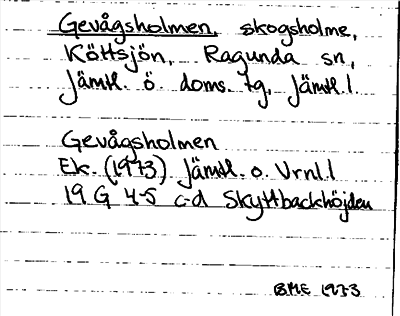 Gevågsholmen, skogsholme,
Köttsjön, Ragunda sn,
Jämtl. ö. doms. tg, Jämtl. l.
Gevågsholmen
Ek. (1973) Jämtl. o. Vrnl. l
19 G 4-5 c-d Skyttbackhöjden
BME 1973